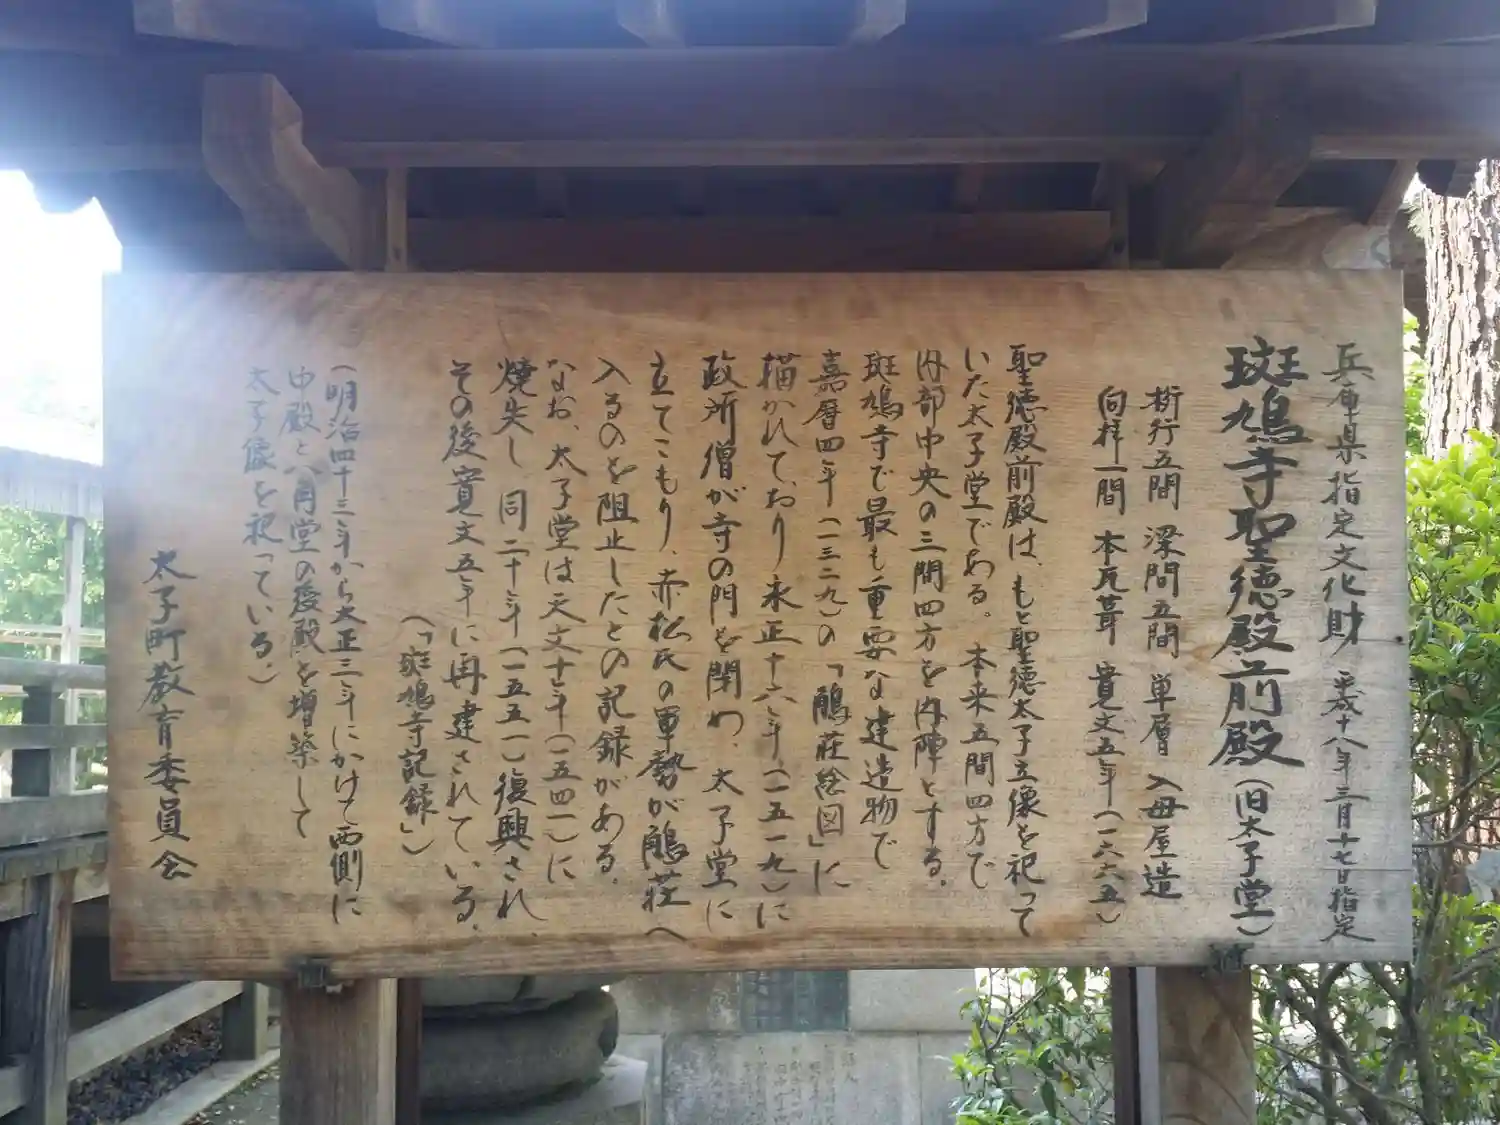 兵庫県指定文化財 平成十八年三月十七日指定
斑鳩寺聖徳殿前殿(旧太子堂)
桁行五間 梁間五間 単層 入母屋造
向拝一間 本瓦葺 寛文五年(一六六五)
聖徳殿前殿は、もと聖徳太子立像を祀って
いた太子堂である。本来五間四方で
内部中央の三間四方を内陣とする。
斑鳩寺で最も重要な建造物で
嘉暦四年(一三二九)の「鵤荘絵図」に
描かれており永正十六年(一五一九)に
政所僧が寺の門を閉め、太子堂に
立てこもり、赤松氏の軍勢が鵤荘へ
入るのを阻止したとの記録がある。
なお、太子堂は天文十年(一五四一)に
焼失し同二十年(一五五一)復興され、
その後寛文五年に再建されている。
(「斑鳩寺記録」)
(明治四十三年から大正三年にかけて西側に
中殿と八角堂の後殿を増築して
太子像を祀っている。)
太子町教育委員会